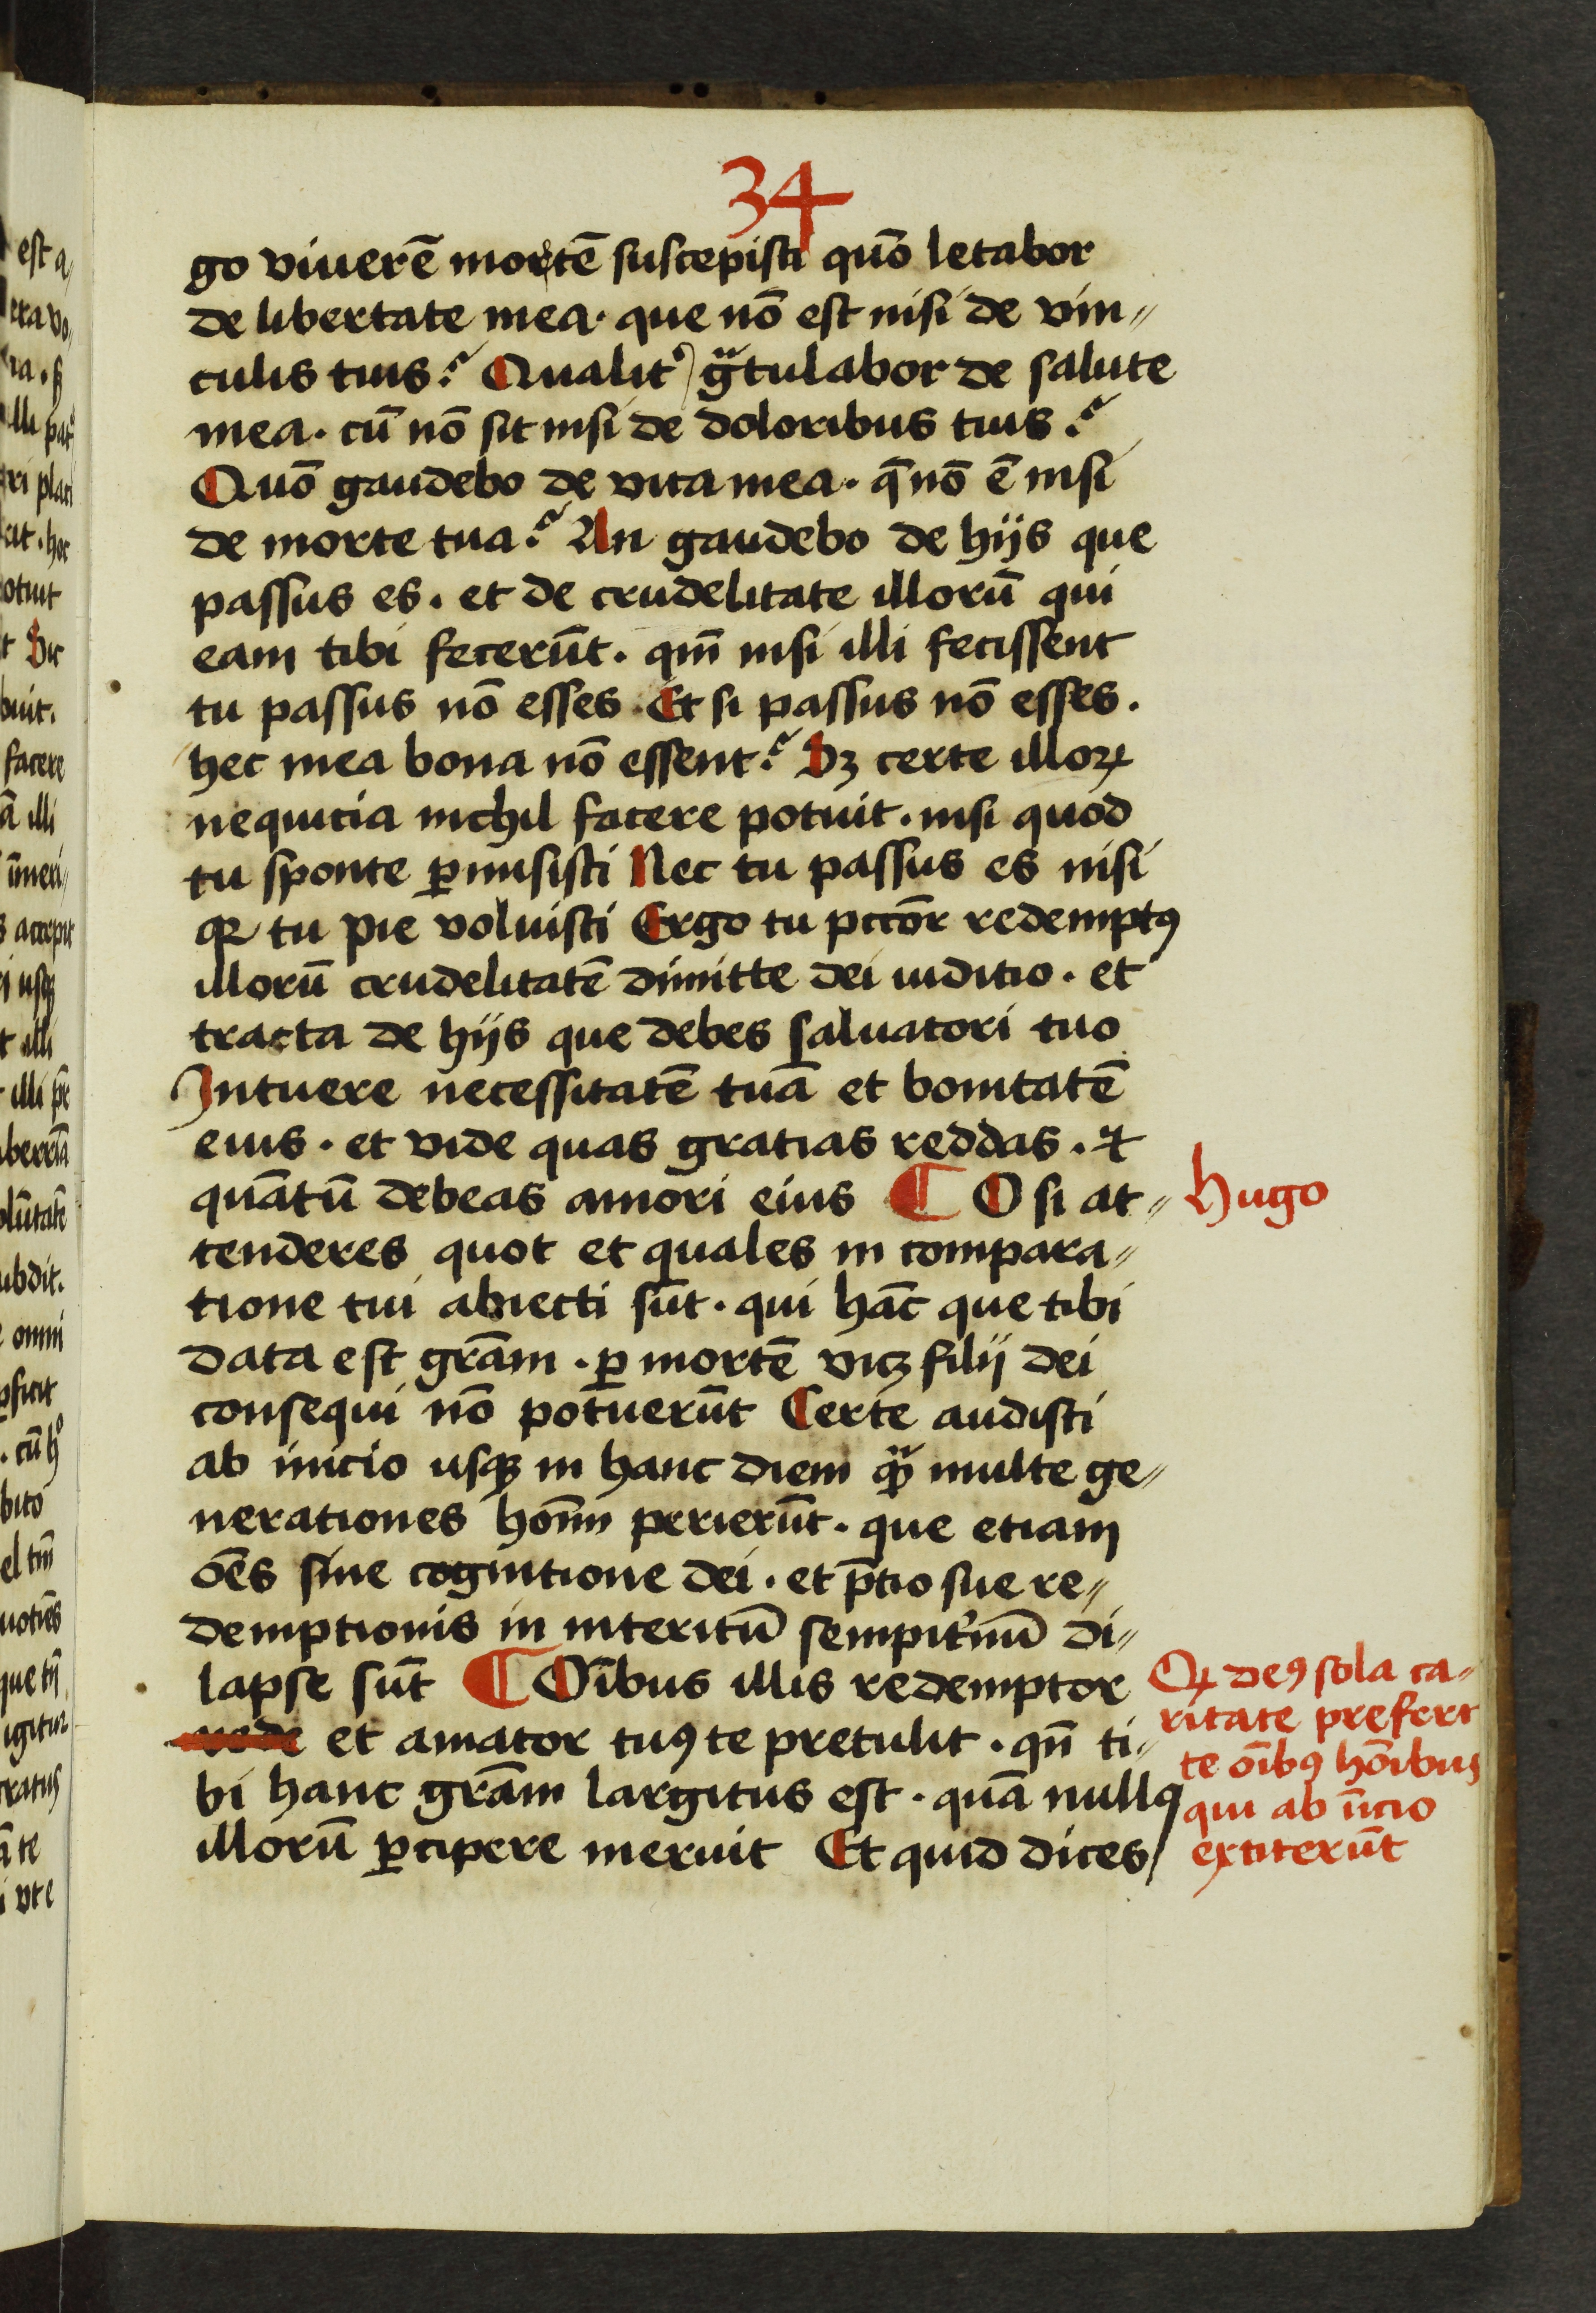 34
go viuerē mortē suscepisti quō letabor
de libertate mea. que nō est nisi de vin⸗
culis tuis? Qualit᷑ gᷓtulabor de salute
mea. cū nō sit nisi de doloribus tuis?
Quō gaudebo de vita mea. q̄ nō ē nisi
de morte tua? An gaudebo de hijs que
passus es. et de crudelitate illorū qui
eam tibi fecerūt. qm̄ nisi illi fecissent
tu passus nō esses. Et si passus nō esses.
hec mea bona nō essent? Sꝫ certe illoꝝ
nequicia nichil facere potuit. nisi quod
tu sponte ꝑmisisti Nec tu passus es nisi
qꝛ tu pie voluisti Ergo tu pctōr redemptꝰ
illorū crudelitatē dimitte dei iuditio. et
tracta de hijs que debes saluatori tuo
Intuere necessitatē tuā et bonitatē
eius. et vide quas gratias reddas. ⁊
quātū debeas amori eius ¶ O si at⸗
Hugo
tenderes quot et quales in compara⸗
tione tui abiecti sūt. qui hāc que tibi
data est grām. ꝑ mortē vicꝫ filij dei
consequi nō potuerūt Certe audisti
ab inicio usqꝫ in hanc diem qᷓꝫ multe ge⸗
nerationes hoīm perierūt. que etiam
oēs sine cognitione dei. et p̄tio sue re⸗
demptionis in interitū sempit᷑nū di⸗
lapse sūt ¶ Oībus illis redemptor
rede et amator tuꝰ te pretulit. qn̄ ti⸗
bi hanc grām largitus est. quā nullꝰ
illorū ꝑcipere meruit Et quid dices
Qꝛ deꝰ sola ca⸗
ritate prefert
te oībꝰ hoībus
qui ab īicio
extiterūt